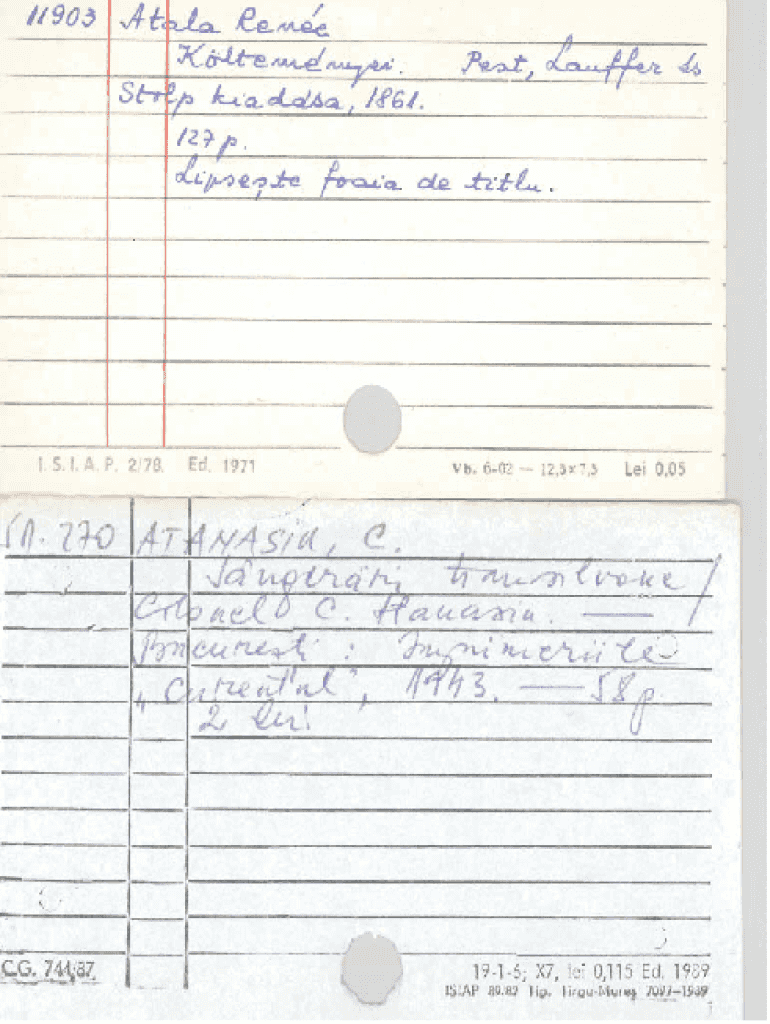 11903 Atala Renée
Költeményei. Pest, Lauffer és
Stolp kiadása, 1861.
127 p.
Lipsește foaia de titlu.
I.S.I.A.P. 2/78. Ed. 1971 Vb. 6-02 — 12,5×7,5 Lei 0,05
270 ATANASIU, C.
Sângerări transilvane /
Colonel C. Atanasiu. —
București : Imprimeriile
„Curentul", 1943. — 58 p.
2 lei
C.G. 744/87 19-1-5; X7, lei 0,115 Ed. 1989
ISIAP 89.87 Tip. Tîrgu-Mureș 7097—1989